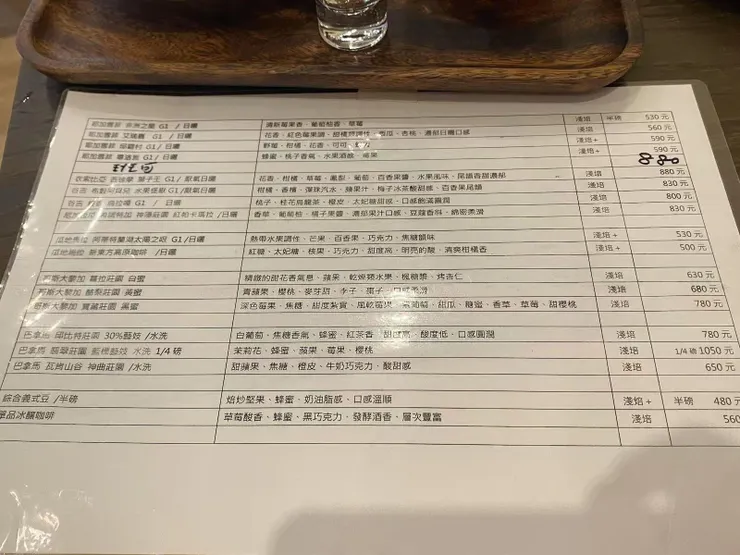 耶加雪菲 G1 /日曬 清新莓果香、葡萄柚香、草莓 淺焙 半磅 530元
耶加雪菲 艾瑞嘉 G1 /日曬 花香、紅色莓果調、甜橘 淺焙 560元
耶加雪菲 G1 /日曬 野莓、柑橘、花香、可可 淺焙+ 590元
耶加雪菲 G1 /日曬 蜂蜜、桃子香氣、水果酒 淺焙+ 590元
880
G1/厭氧日曬 花香、柑橘、鳳梨、葡萄、百香果醬、水果風味、尾韻香甜濃郁 淺焙 880元
水果怪獸 G1/厭氧日曬 柑橘、香橘、彈珠汽水、蘋果汁、梅子冰茶酸甜感、百香果尾韻 淺焙 830元
G1 /日曬 桃子、桂花烏龍茶、橙皮、太妃糖甜感、口感飽滿圓潤 淺焙 800元
神隱莊園 紅柏卡琪拉/日曬 香草、葡萄柚、橘子果醬、清甜果汁口感、豆蔻香料、綿密柔滑 淺焙 830元
瓜地馬拉 阿蒂特蘭湖太陽之眼 G1/日曬 熱帶水果調性、芒果、百香果、巧克力、焦糖韻味 淺焙+ 530元
瓜地馬拉 新東方高原咖啡 /日曬 紅糖、太妃糖、核果、巧克力、甜度高、明亮的酸、清爽柑橘香 淺焙+ 500元
哥斯大黎加 莊園 白蜜 精緻的甜花香氣息、蘋果、乾燥類水果、楓糖漿、烤杏仁 淺焙 630元
哥斯大黎加 莊園 黃蜜 青蘋果、櫻桃、麥芽甜、李子、棗子、口感柔滑 淺焙 680元
哥斯大黎加 莊園 黑蜜 深色莓果、焦糖、甜度紮實、風乾莓果、葡萄、甜瓜、糖蜜、香草、草莓、甜櫻桃 淺焙 780元
巴拿馬 邱比特莊園 30%藝妓/水洗 白葡萄、焦糖香氣、蜂蜜、紅茶香、甜度高、酸度低、口感圓潤 淺焙 780元
巴拿馬 翡翠莊園 藍標藝妓 水洗 1/4磅 茉莉花、蜂蜜、蘋果、莓果、櫻桃 淺焙 1/4磅 1050元
巴拿馬 瓦肯山谷 神曲莊園 /水洗 甜蘋果、焦糖、橙皮、牛奶巧克力、酸甜感 淺焙 650元
綜合義式豆 /半磅 焙炒堅果、蜂蜜、奶油脂感、口感溫順 淺焙+ 半磅 480元
單品冰釀咖啡 草莓酸香、蜂蜜、黑巧克力、發酵酒香、層次豐富 淺焙 560